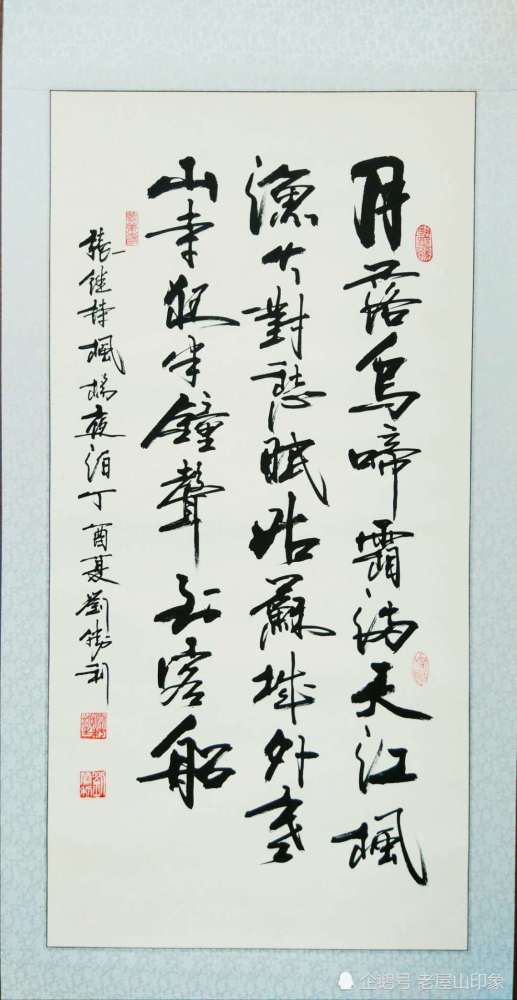 月落烏啼霜滿天江楓
漁火對愁眠姑蘇城外寒
山寺夜半鐘聲到客船
張继詩楓橋夜泊丁酉夏劉勝利
企鹅号 老屋山印象